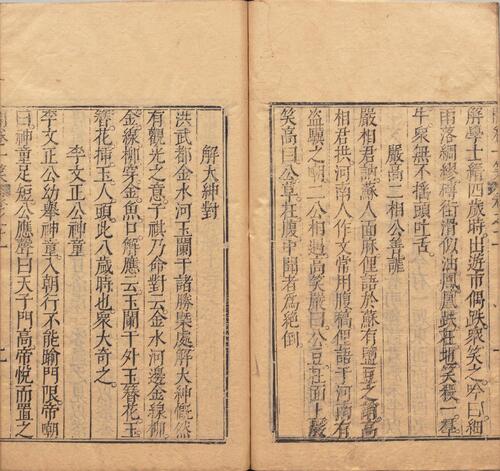 解學士縉四歲時出遊市偶跌衆笑之吟曰細
雨落綢繆磚街滑似油鳳凰跌在地笑殺一羣
牛衆無不搖頭吐舌
嚴高二相公善謔
嚴相君訥蘇人面麻俚語於蘇有鹽豆之誚高
相君拱河南人作文常用腹稿俚語于河南有
盜驢之嘲二公相遇高笑嚴曰公豆在面上嚴
笑高曰公草在腹中聞者爲絕倒
解大紳對
洪武都金水河玉闌干諸勝槩處解大紳慨然
有觀光之意子祺乃命對云金水河邊金線柳
金線柳穿金魚口解應云玉闌干外玉簪花玉
簪花揷玉人頭此八歲時也衆大奇之
李文正公神童
李文正公幼舉神童入朝行不能踰門限帝嘲
曰神童足短公應聲曰天子門高帝悅而置之